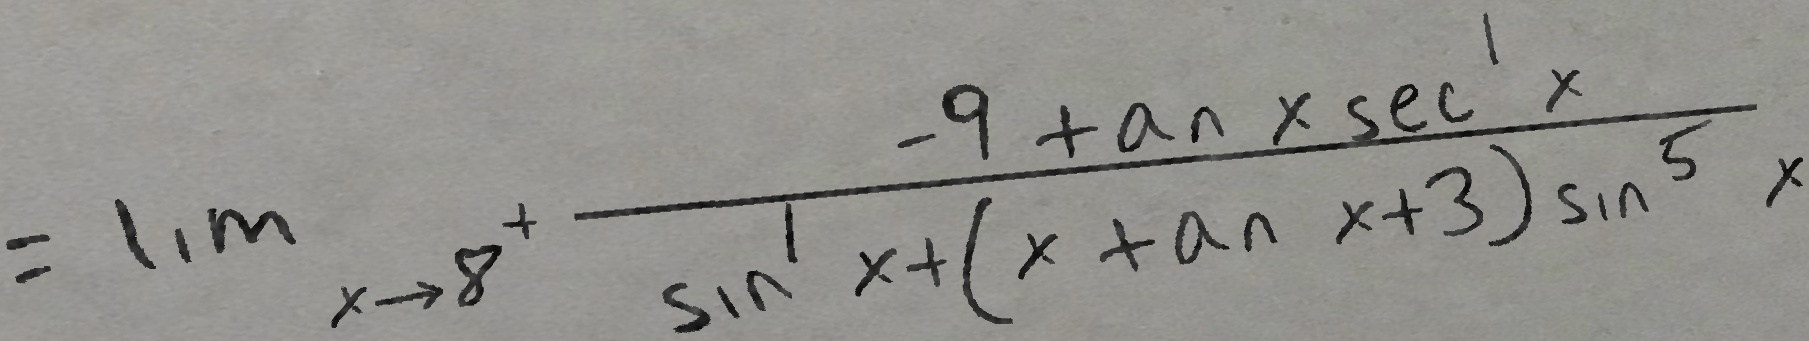 = \lim_{x \to 8^+} \frac{-9 \tan x \sec^1 x}{\sin^1 x + (x \tan x + 3) \sin^5 x}